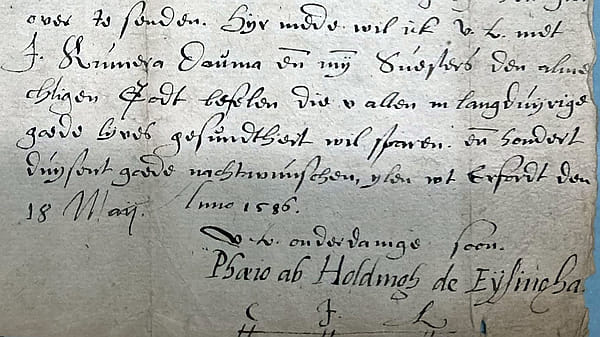 over te senden. Hyr mede wil ick v. l. met
J. Rünera Doüma en̄ mÿ Süesters den alme
chtigen Godt befelen die v allen in langduyrige
goede lyves gesündtheit wil sparen. en̄ hondert
duysent goede nachtwünschen, ylen wt Erfordt den
18 Maij. Anno 1586.
V. l. onderdanige soon.
Phæio ab Holdingh de Eÿsingha.